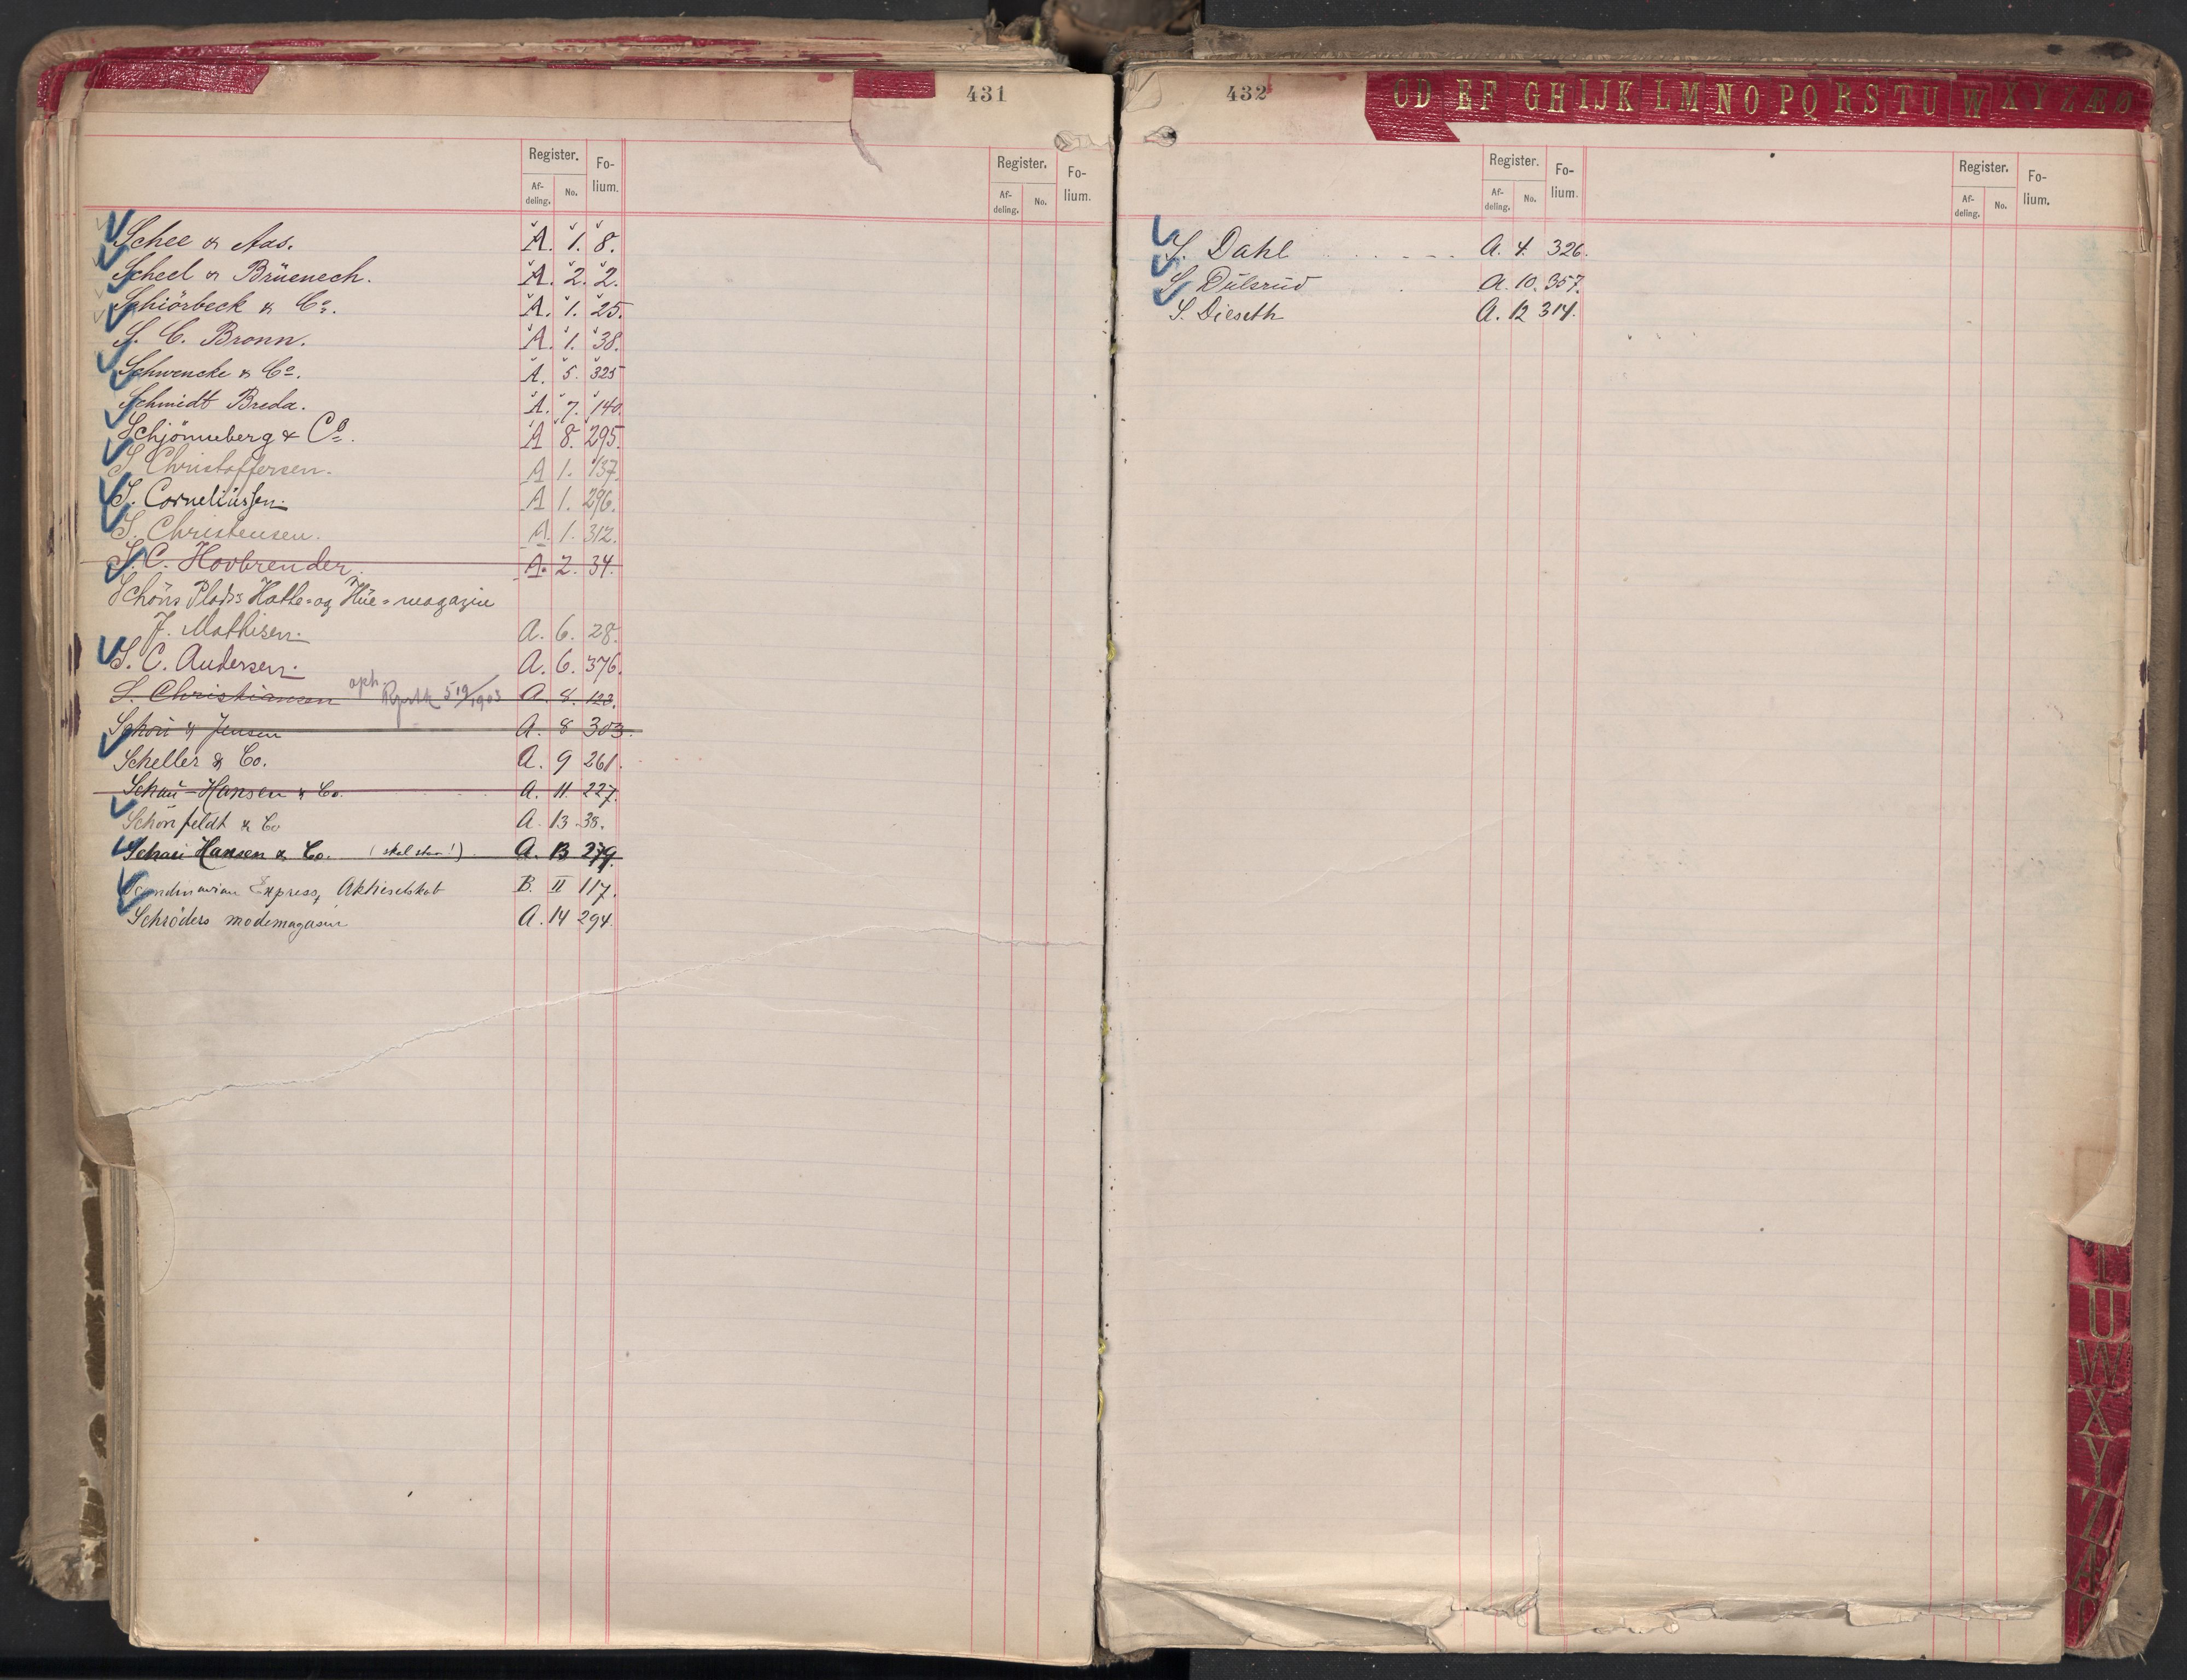 431
Register.
Fo-
lium.
Af-
deling.
No.
Register.
Fo-
lium.
Af-
deling.
No.
Schee & Aas. A. 1. 8.
Scheel & Brüenech. A. 2. 2.
Schiörbeck & Co. A. 1. 25.
S. C. Bronn. A. 1. 38.
Schwencke & Co. A. 5. 325
Schmidt Breda. A. 7. 140.
Schjönneberg & Co. A 8. 295.
S. Christoffersen. A 1. 137.
S. Corneliussen. A 1. 296.
S. Christensen. A. 1. 312.
S. C. Hovbrender. A. 2. 34.
Schöns Plads Hatte- og Hüe-magazin
J. Mathisen. A. 6. 28.
S. C. Andersen. A. 6. 376.
S. Christiansen oph. A. 8. 123.
Schou & Jensen A. 8 303.
Scheller & Co. A. 9 261.
Schau-Hansen & Co. A. 11. 227.
Schönfeldt & Co A. 13. 38.
Schau Hansen & Co. (skal staa!) A. 13 279.
Scandinavian Express, Aktieselskab B. II 117.
Schrøders modemagasin A. 14 294.
432
CD EF GH IJK LM NO PQ RS TU W XY ZÆØ
Register.
Fo-
lium.
Af-
deling.
No.
Register.
Fo-
lium.
Af-
deling.
No.
S. Dahl A. 4. 326.
S. Dülsrud A. 10. 357.
S. Dieseth A. 12 314.
T
U
W
X
Y
Z
Æ
Ø